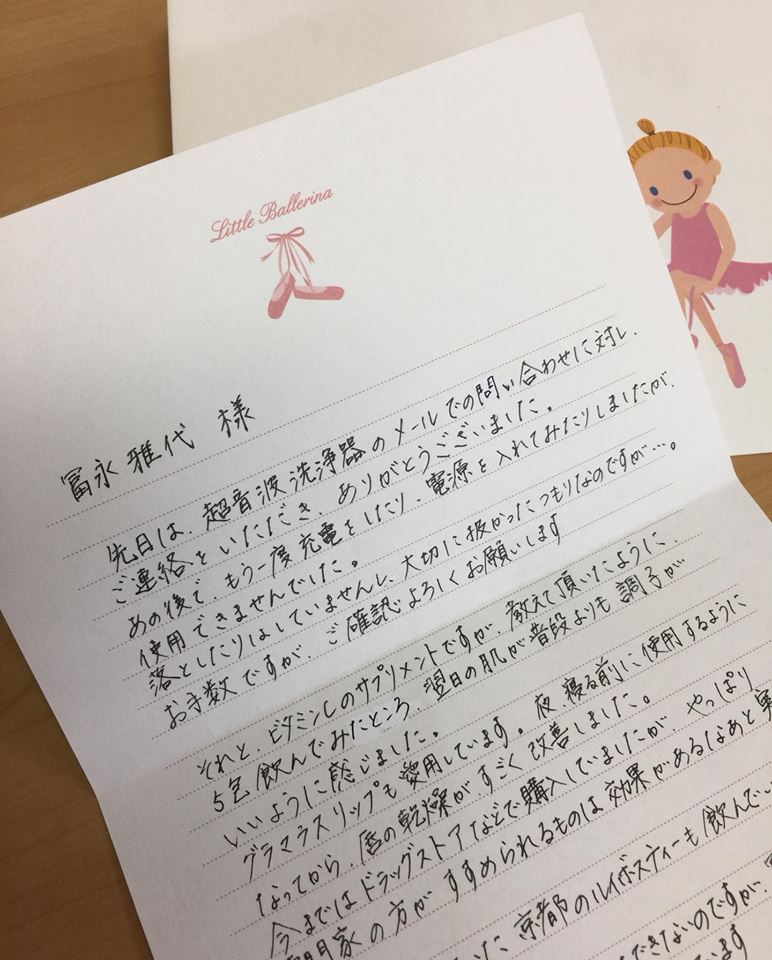 Little Ballerina
冨永雅代 様
先日は、超音波洗浄器のメールでの問い合わせに対し、
ご連絡をいただき、ありがとうございました。
あの後で、もう一度充電をしたり、電源を入れてみたりしましたが、
使用できませんでした。
落としたりはしていませんし、大切に扱かったつもりなのですが…。
お手数ですが、ご確認よろしくお願いします
それと、ビタミンCのサプリメントですが、教えて頂いたように、
5包飲んでみたところ、翌日の肌が普段よりも調子が
いいように感じました。
グラマラスリップも愛用しています。夜寝る前に使用するように
なってから、唇の乾燥がすごく改善しました。
今まではドラッグストアなどで購入していましたが、やっぱり
門家の方がすすめられるものは効果があるなあと実
いた京都のルイボスティーも飲んでい
できないのですが、
います